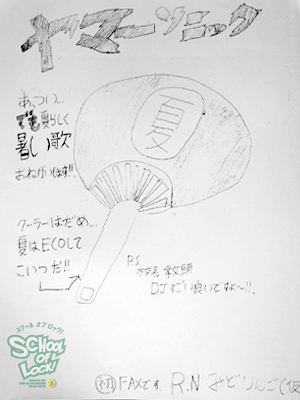 ヤマーソニック
あっつい…
でも夏らしく
暑い歌
おねがいします!!
夏
クーラーはだめ…
夏はECOして
こいつだ!!
P.S
校長教頭
DJすごい良いですね〜!!
スクール オブ ロック!
SCHOOL
OF
LOCK!
初 FAXです R.N みどりんご(仮